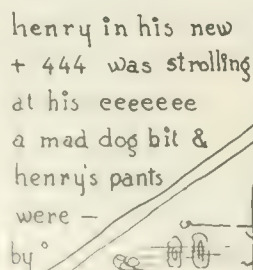 henry in his new
+ 444 was strolling
at his eeeeeee
a mad dog bit &
henry's pants
were —
by°